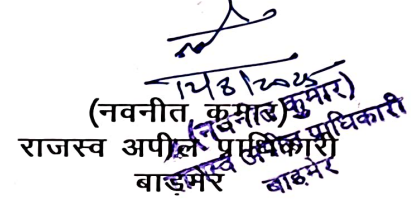 12/8/2025
(नवनीत कुमार)
राजस्व अपील प्राधिकारी
बाड़मेर
(नवनीत कुमार)
राजस्व अपील प्राधिकारी
बाड़मेर